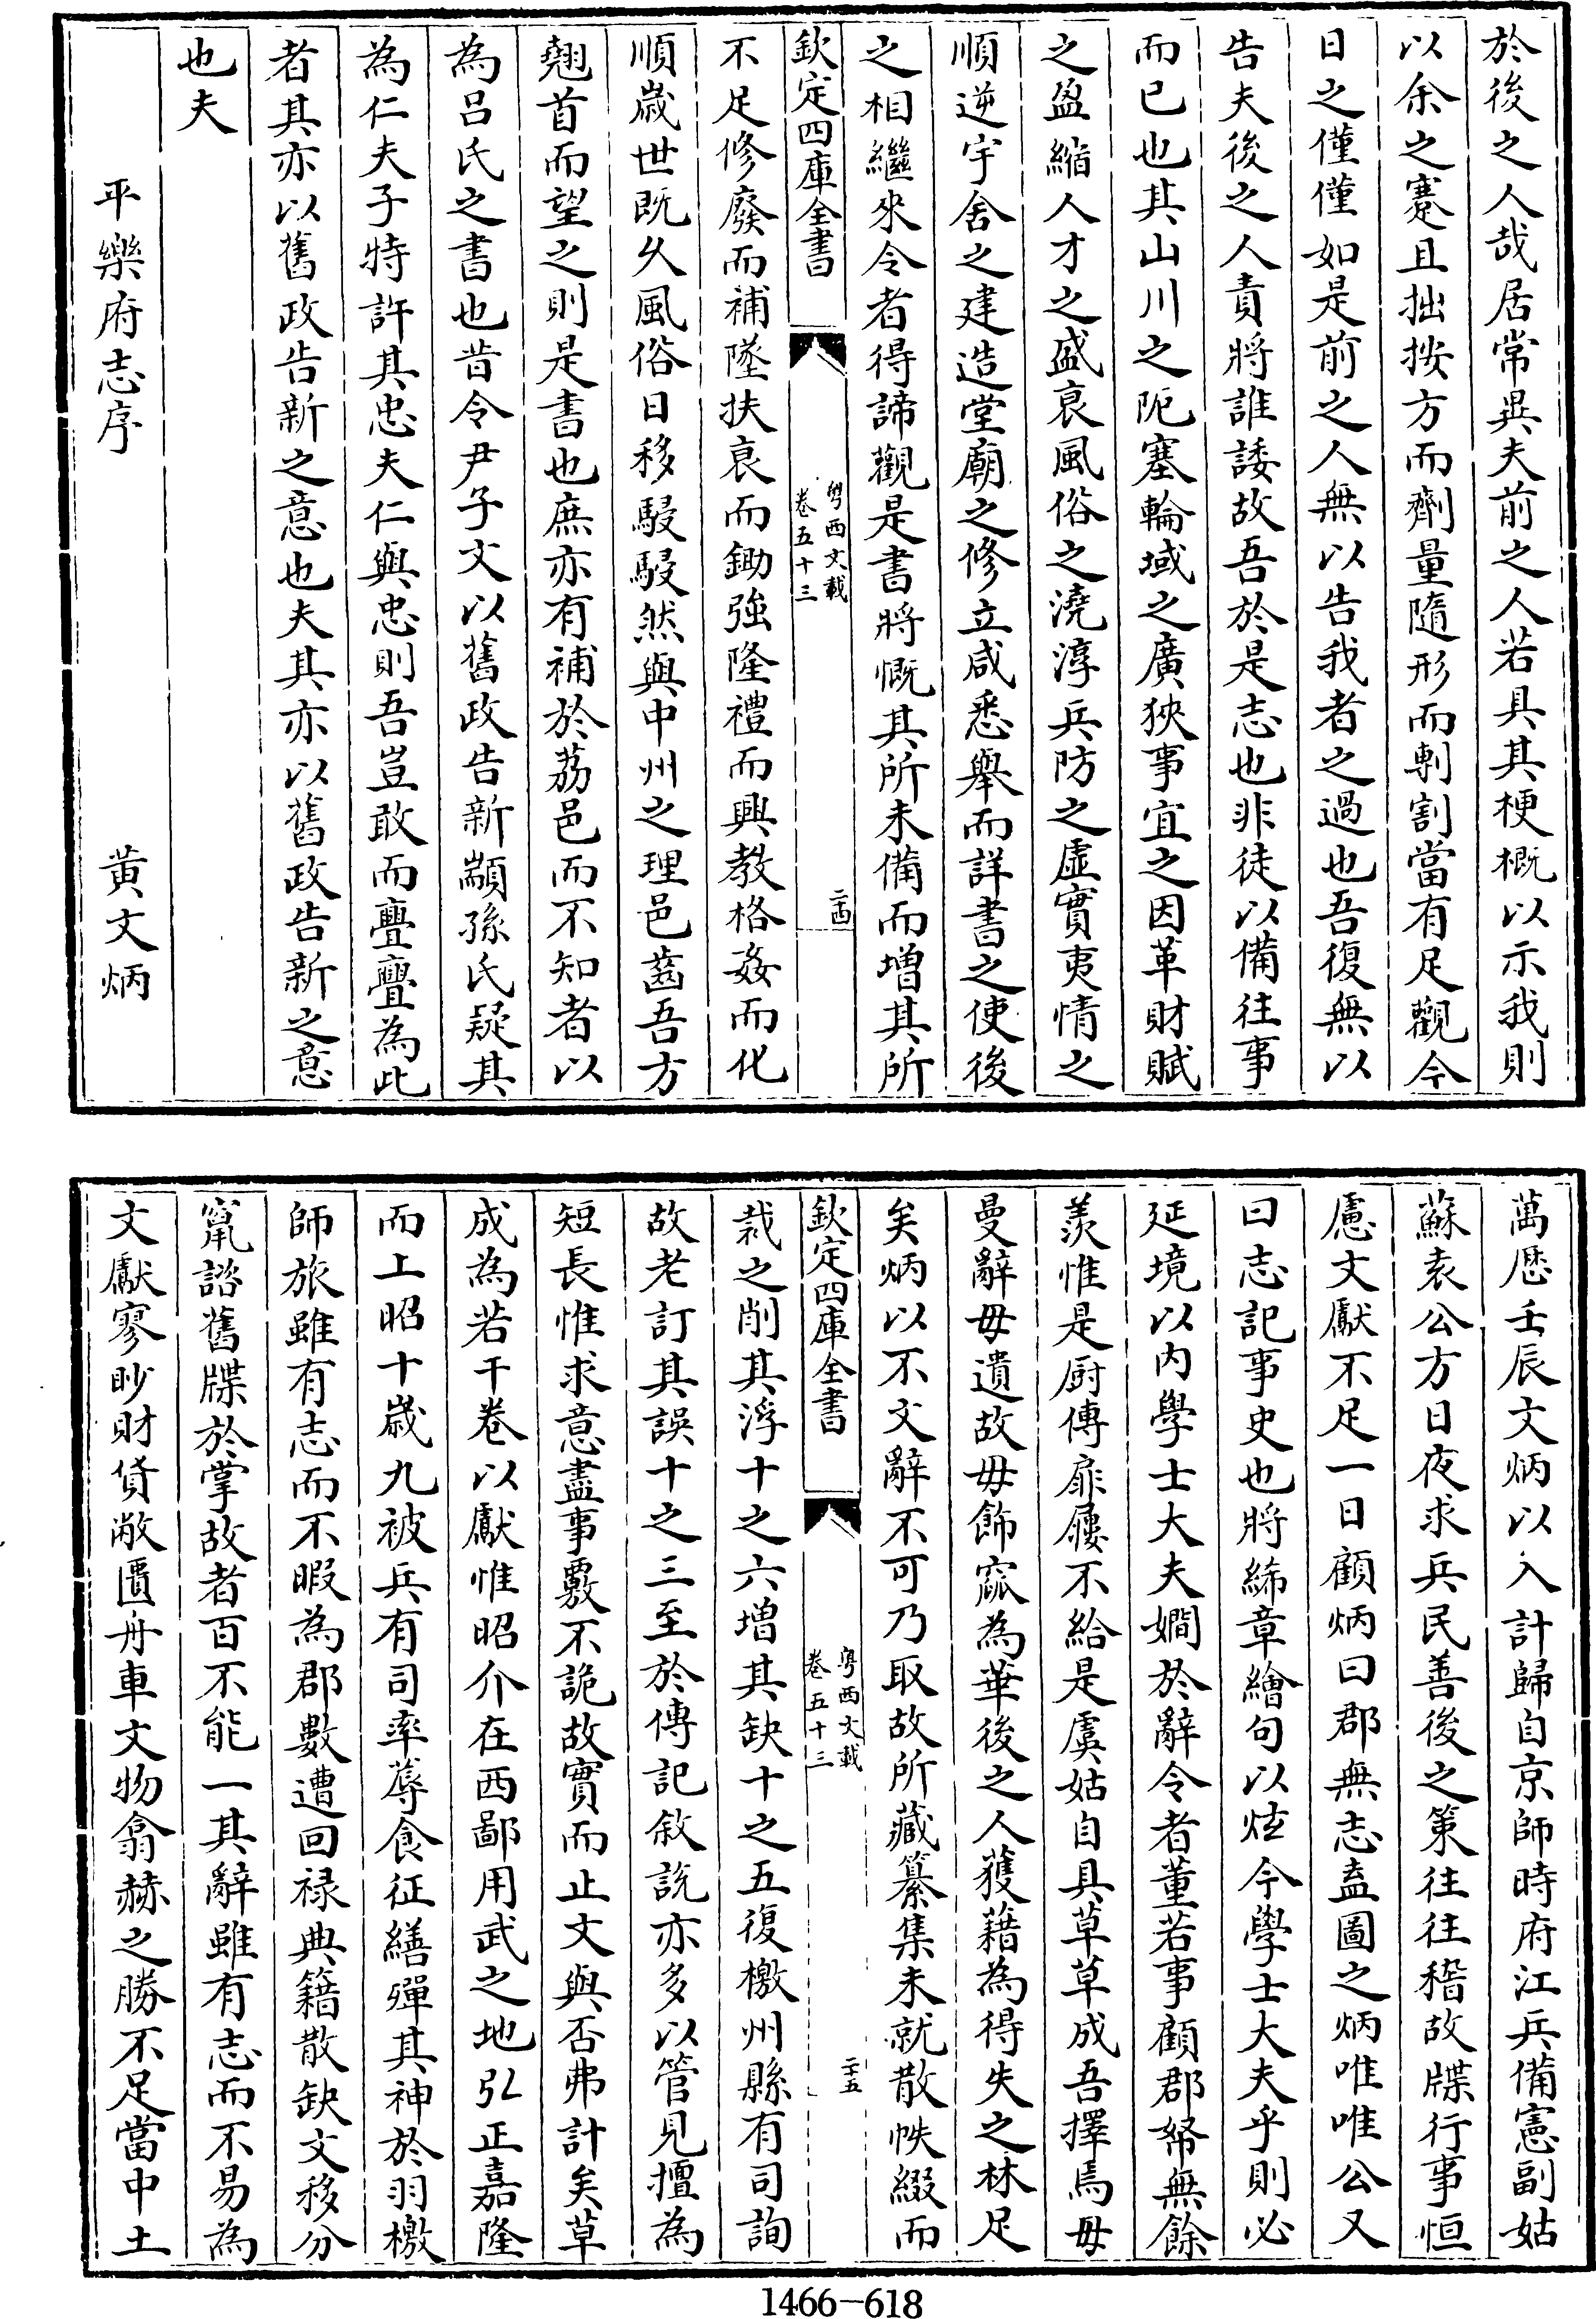 於後之人哉居常異夫前之人若具其梗概以示我則
以余之蹇且拙按方而劑量隨形而剸割當有足觀今
日之僅僅如是前之人無以告我者之過也吾復無以
告夫後之人責將誰諉故吾於是志也非徒以備往事
而已也其山川之阨塞輪域之廣狹事宜之因革財賦
之盈縮人才之盛衰風俗之澆淳兵防之虛實夷情之
順逆宇舍之建造堂廟之修立咸悉舉而詳書之使後
之相繼來令者得諦觀是書將慨其所未備而增其所
欽定四庫全書
粵西文載
卷五十三
二十四
不足修廢而補墜扶衰而鋤強隆禮而興教格姦而化
順歲世既久風俗日移駸駸然與中州之理邑齒吾方
翹首而望之則是書也庶亦有補於荔邑而不知者以
為呂氏之書也昔令尹子文以舊政告新顓孫氏疑其
為仁夫子特許其忠夫仁與忠則吾豈敢而亹亹為此
者其亦以舊政告新之意也夫其亦以舊政告新之意
也夫
平樂府志序 黃文炳
萬歷壬辰文炳以入計歸自京師時府江兵備憲副姑
蘇袁公方日夜求兵民善後之策往往稽故牒行事恒
慮文獻不足一日顧炳曰郡無志盍圖之炳唯唯公又
曰志記事史也將絺章繪句以炫今學士大夫乎則必
延境以內學士大夫嫺於辭令者董若事顧郡帑無餘
羨惟是厨傳扉屨不給是虞姑自具草草成吾擇焉毋
曼辭毋遺故毋飾窳為華後之人獲藉為得失之林足
矣炳以不文辭不可乃取故所藏纂集未就散帙綴而
欽定四庫全書
粵西文載
卷五十三
二十五
裁之削其浮十之六增其缺十之五復檄州縣有司詢
故老訂其誤十之三至於傳記敘說亦多以管見擅為
短長惟求意盡事覈不詭故實而止文與否弗計矣草
成為若干卷以獻惟昭介在西鄙用武之地弘正嘉隆
而上昭十歲九被兵有司率蓐食征繕殫其神於羽檄
師旅雖有志而不暇為郡數遭回祿典籍散缺文移分
竄諮舊牒於掌故者百不能一其辭雖有志而不易為
文獻寥眇財貨敝匱舟車文物翕赫之勝不足當中土
1466—618